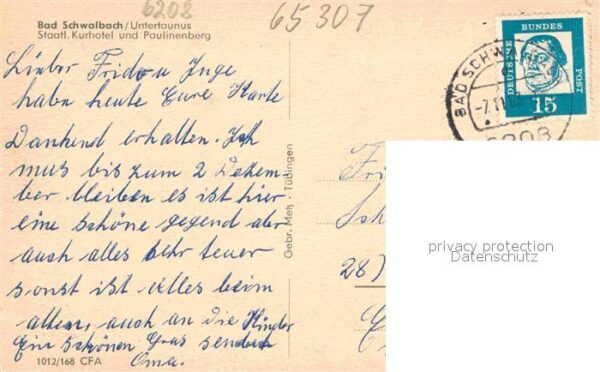 6208
65307
Bad Schwalbach/Untertaunus
Staatl. Kurhotel und Paulinenberg
Lieber Frido u Inge
habe heute Eure Karte
Dankend erhalten. Ich
mus bis zum 2 Dezem-
ber bleiben es ist hier
eine schöne gegend aber
auch alles sehr teuer
sonst ist alles beim
alten, auch an die Kinder
Ein schönen Grus sendet
Oma.
1012/168 CFA
Gebr. Metz · Tübingen
DEUTSCHE BUNDES POST
15
BAD SCHW
-7.11.
6208
Fri
Sch
28)
privacy protection
Datenschutz